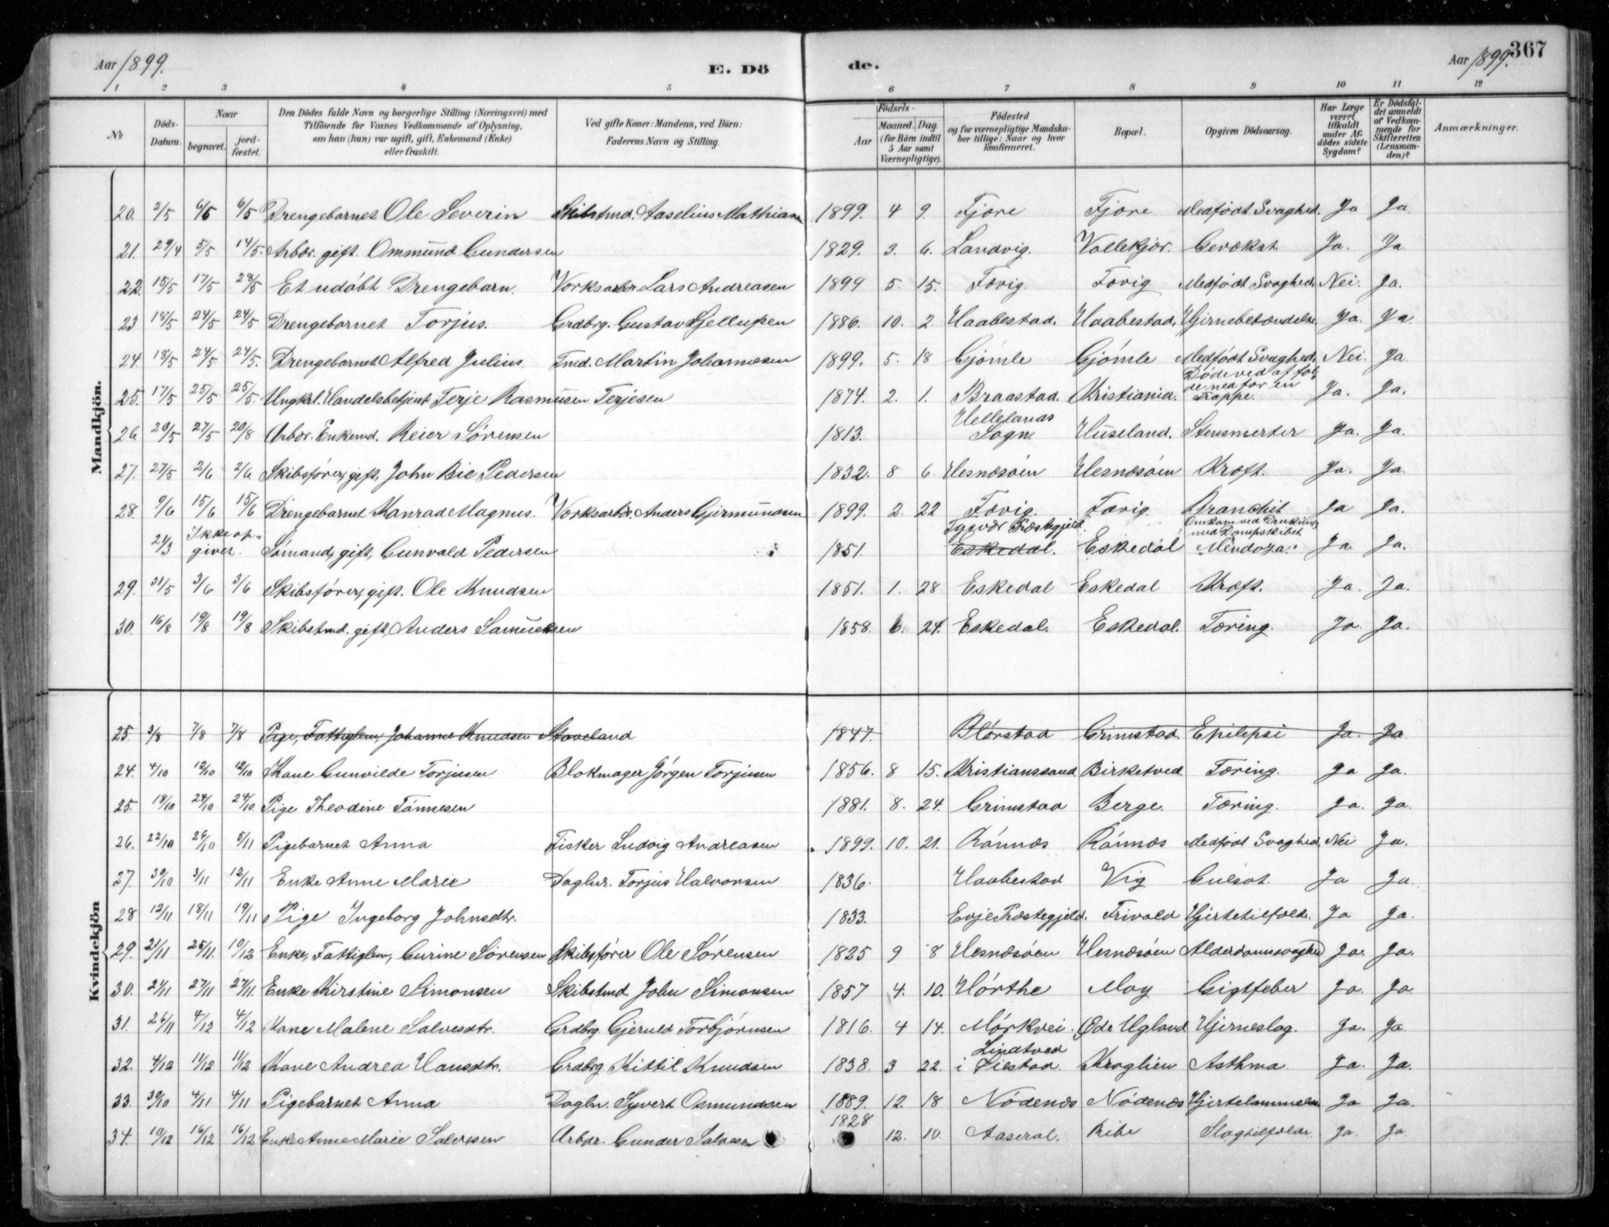 Aar 1899. E. Dö de. Aar 1899. 367
1 2 3 4 5 6 7 8 9 10 11 12
No Döds-Datum. Naar begravet. jord-fæstet. Den Dödes fulde Navn og borgerlige Stilling (Næringsvei) med Tilföiende for Voxnes Vedkommende af Oplysning, om han (hun) var ugift, gift, Enkemand (Enke) eller fraskilt. Ved gifte Koner: Mandens, ved Börn: Faderens Navn og Stilling. Födsels- Aar Maaned. Dag (for Börn indtil 5 Aar samt Værnepligtige). Födested og for værnepligtige Mandskaber tillige: Naar og hvor konfirmeret. Bopæl. Opgiven Dödsaarsag. Har Læge været tilkaldt under Afdödes sidste Sygdom? Er Dödsfaldet anmeldt af Vedkommende for Skifteretten (Lensmanden)? Anmærkninger.
Mandkjön.
20. 2/5 6/5 6/5 Drengebarnet Ole Severin Skibstmd. Aaselius Mathiasen 1899. 4 9 Fjære Fjære Medfødt Svaghed. Ja Ja
21. 29/4 5/5 14/5. Arbdr. gift. Ommund Gundersen 1829. 3. 6. Landvig. Vallekjær. Gevækst. Ja. Ja
22. 15/5 17/5 28/5 Et udöbt Drengebarn. Lars Andreasen 1899 5. 15. Fævig. Fævig Medfødt Svaghed. Nei. Ja.
23 18/5 24/5 24/5 Drengebarnet Torjus. Grdbrg. Gustav Kjellupsen 1886. 10. 2 Haabestad. Haabestad. Hjernebetændelse. Ja. Ja
24. 18/5 24/5 24/5. Drengebarnet Alfred Julius. Tmd. Martin Johannesen 1899. 5. 18 Gjömle Gjömle Medfødt Svaghed. Nei. Ja.
25. 17/5 25/5 25/5 Ungkrl. Handelsbetjent Terje Rasmusen Terjesen 1874. 2. 1. Braastad. Kristiania. Döde ved af Ja. Ja.
26. 20/5 27/5 20/8 Arbdr. Enkemd. Reier Sörensen 1813. Hellelands Sogn. Huseland. Stensmerter Ja. Ja.
27. 27/5 2/6 2/6 Skibsförer, gift, John Bie Pedersen 1832. 8 6. Hesnæsöen Hesnæsöen Kræft. Ja. Ja.
28. 9/6 15/6 15/6 Drengebarnet Konrad Magnus. Anders Gjermundsen 1899. 2. 22 Fævig. Fævig Bronchit Ja Ja.
24/3 Ikke opgivet. Sömand, gift, Gunvald Pedersen 1851. Tysvær Præstegjeld. Eskedal. Eskedal Omkom ved Drukning med Dampskibet "Mendoza". Ja Ja.
29. 31/5 3/6 3/6 Skibsförer, gift. Ole Knudsen 1851. 1. 28 Eskedal Eskedal Kræft. Ja. Ja.
30. 16/8 19/8 19/8 Skibstmd. gift, Anders Samuelsen 1858. 6. 24. Eskedal. Eskedal. Tæring. Ja Ja.
Kvindekjön
25. 3/8 7/8 7/8 Pige, Fattiglem, Johanne Knudsen Staveland 1847. Blörstad Grimstad Epilepsi Ja. Ja
24. 4/10 12/10 12/10 Kone Gunvilde Torjusen Blokmager Jörgen Torjusen 1856. 8 15. Kristianssand Birketved Tæring. Ja Ja.
25. 18/10 24/10 24/10 Pige Theodine Tönnesen 1881. 8. 24. Grimstad Berge Tæring. Ja. Ja.
26. 22/10 26/10 5/11 Pigebarnet Anna Fisker Ludvig Andreasen 1899. 10. 21. Rönnæs Rönnæs Medfødt Svaghed. Nei Ja.
27. 30/10 3/11 12/11 Enke Anne Marie Daglnr. Torjus Halvorsen 1836. Haabestad Vig Gulsot. Ja Ja.
28 12/11 18/11 19/11 Pige Ingeborg Johnsdtr. 1833. Evje Præstegjeld. Frivold Hjertetilfælde. Ja Ja.
29. 21/11 25/11. 10/12 Enke, Fattiglem, Gurine Sörensen Skibsförer Ole Sörensen 1825 9 8 Hesnæsöen Hesnæsöen Alderdomssvaghed Ja. Ja.
30. 21/11 27/11 27/11. Enke Kirstine Simonsen Skibstmd John Simonsen 1857 4. 10. Hörthe Moy Gigtfeber Ja. Ja
31. 26/11 4/12 4/12 Kone Malene Salvesdtr. Grdbrg Gjeruld Torbjörnsen 1816. 4 14. Mörkvei. Öde Ugland Hjerneslag. Ja. Ja
32. 4/12 11/12 11/12 Kone Andrea Hansdtr. Grdbrg Kittil Knudsen 1838. 3 22. Lindtved i Öiestad. Kroglien Asthma Ja. Ja.
33. 30/10 4/11 4/11 Pigebarnet Anna Daglnr. Syvert Osmundsen 1889. 12. 18 Nödenæs Nödenæs Hjertelammelse Ja Ja.
34. 10/12 16/12 16/12 Enke Anne Marie Salvesen Arbdr. Gunder Salvesen 1828 12. 10 Aaseral. Ribe Slagtilfælde. Ja. Ja